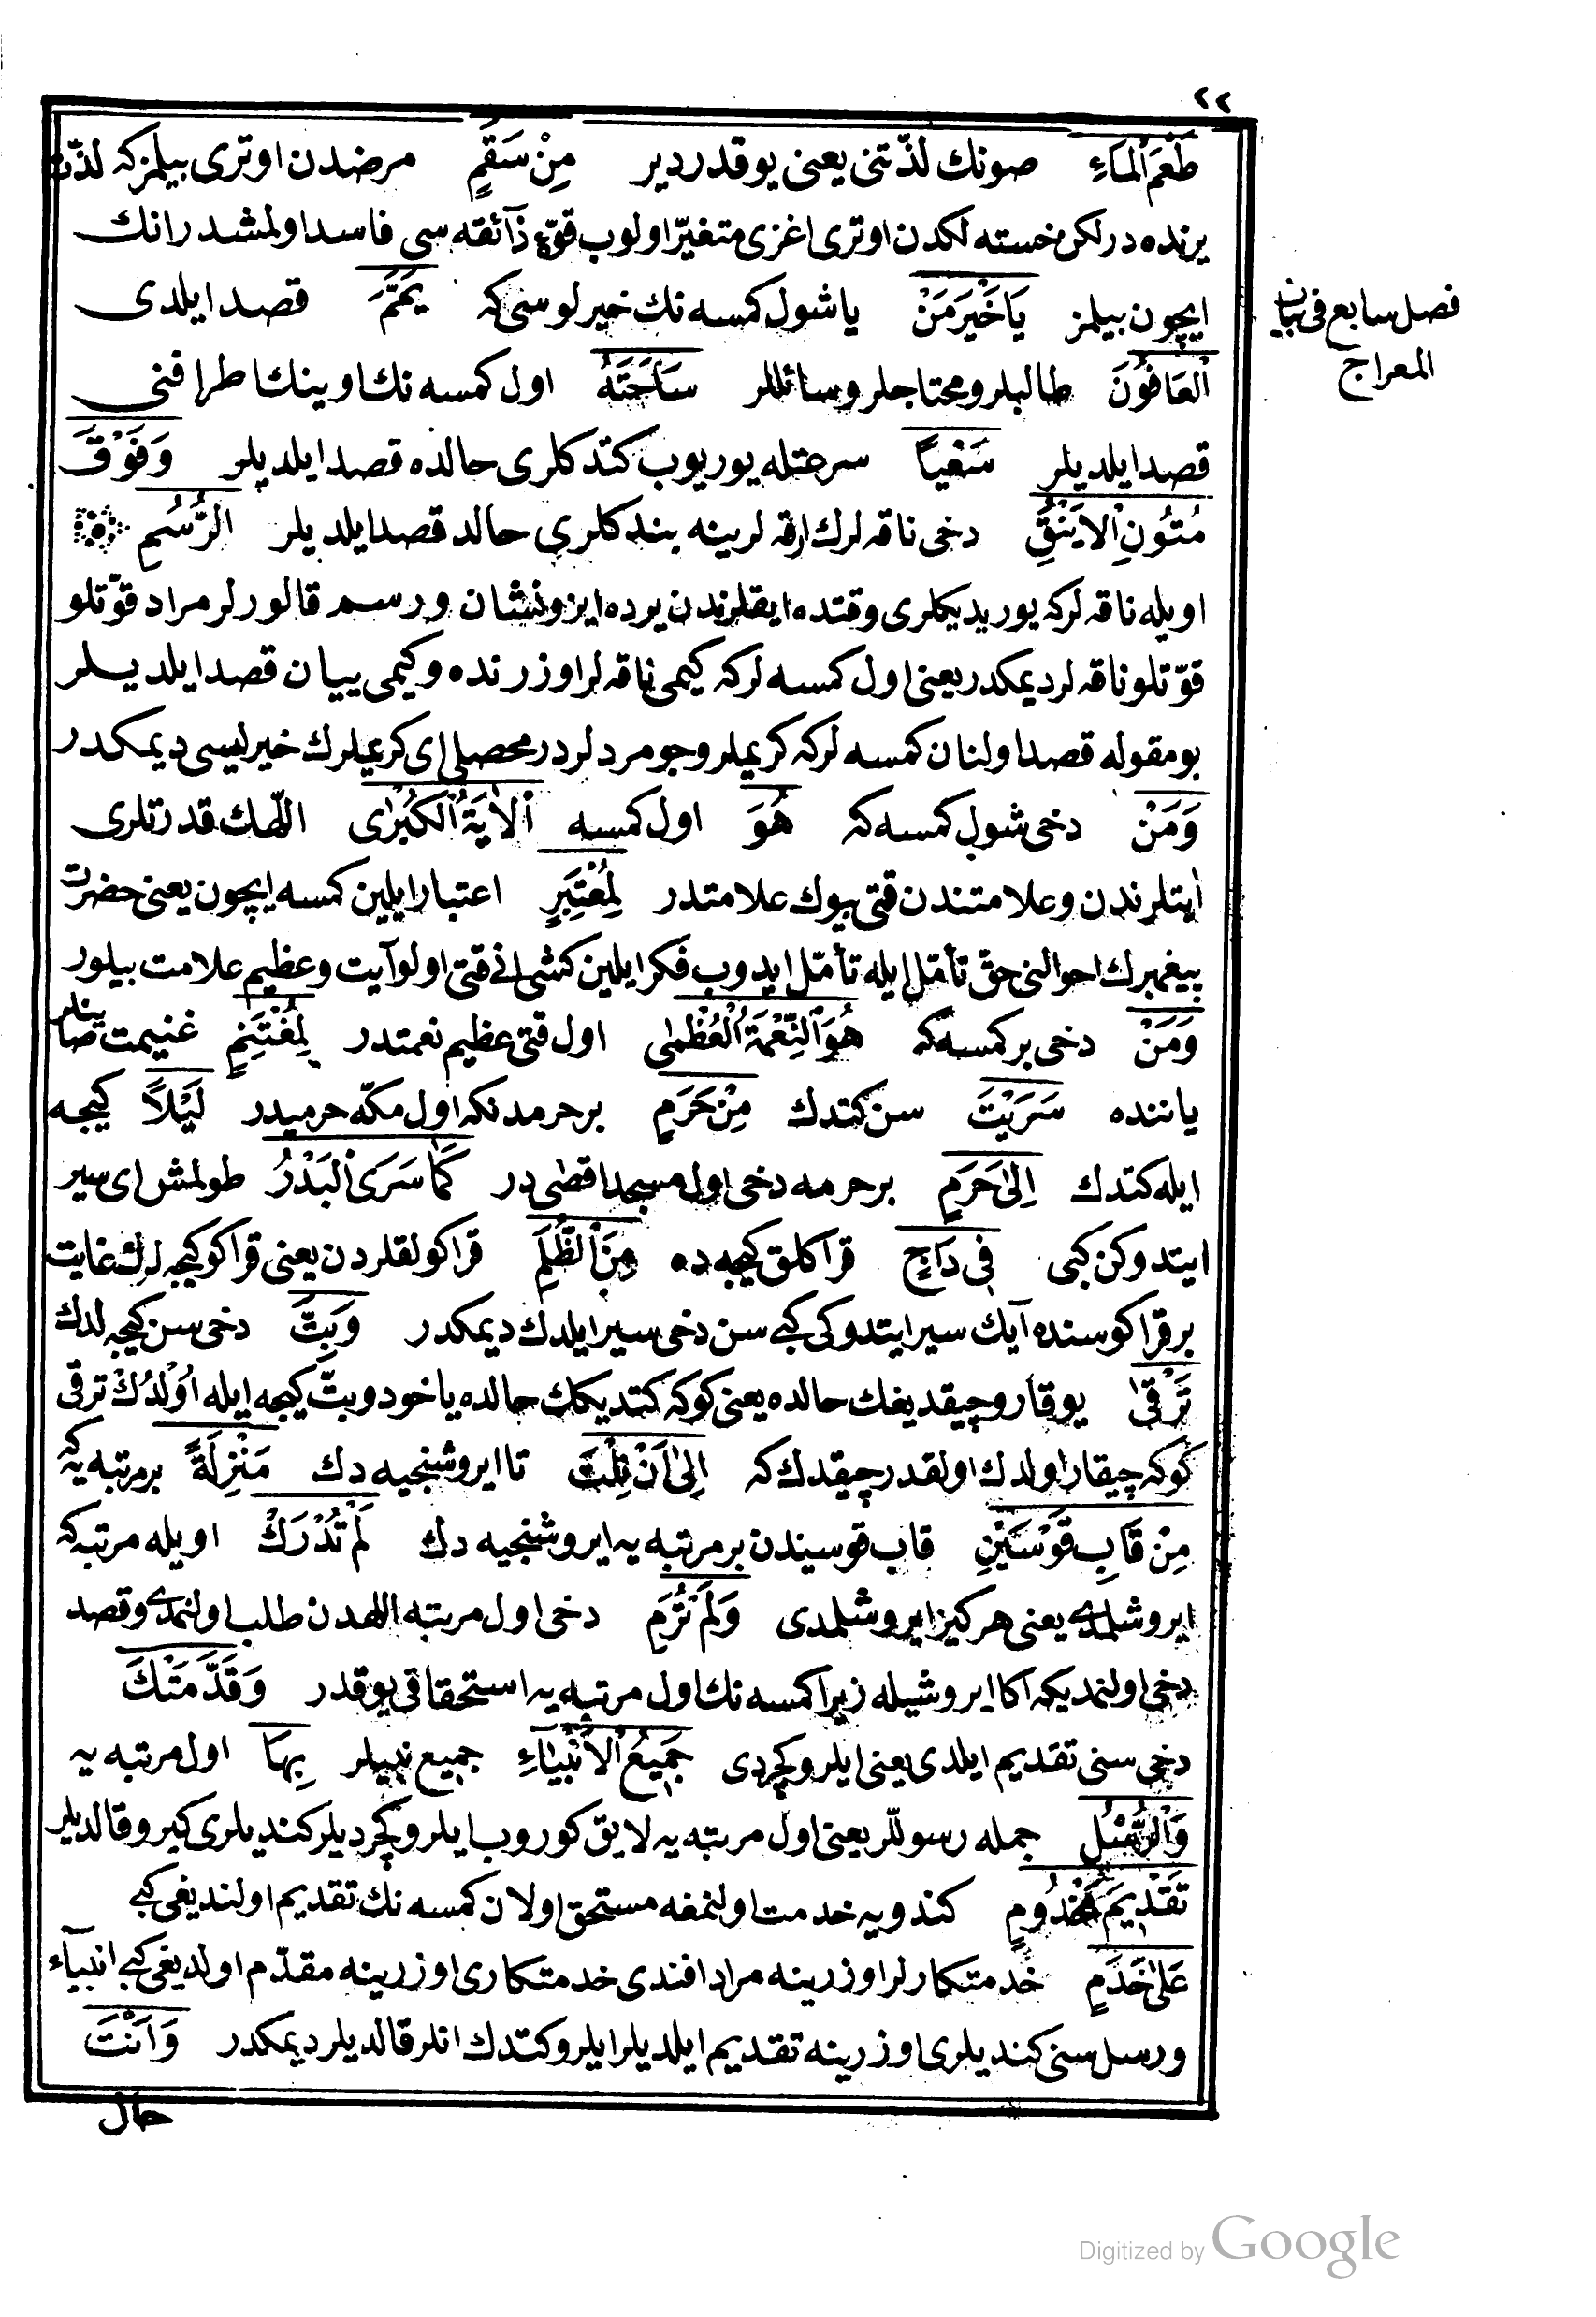 ٢٢
طَعْمَ الْمَاءِ صونك لذّتنى يعنى يوقدر دير مِنْ سَقَمٍ مرضدن اوترى بيلمز كه لذّت
يرنده در لكن خسته لكدن اوترى اغزى متغيّر اولوب قوّۀ ذآئقه سى فاسد اولمشدر انك
ايچون بيلمز يَا خَيْرَ مَنْ يا شول كمسه نك خيرلوسى كه يَمَّمَ قصد ايلدى
الْعَافُونَ طالبلر و محتاجلر و سائللر سَاحَتَهُ اول كمسه نك اوينك اطرافنى
قصد ايلديلر سَعْيًا سرعتله يوريوب كتدكلرى حالده قصد ايلديلر وَفَوْقَ
مُتُونِ الْاَيْنُقِ دخى ناقه لرك ارقه لرينه بندكلرى حالد قصد ايلديلر الرُّسُمِ
اويله ناقه لركه يوريديكلرى وقتده ايقلرندن يرده ايز و نشان و رسم قالورلر مراد قوّتلو
قوّتلو ناقه لر ديمكدر يعنى اول كمسه لركه كيمى ناقه لر اوزرنده و كيمى يبيان قصد ايلديلر
بو مقوله قصد اولنان كمسه لركه كريملر و جومردلردر محصلى اى كريملرك خيرليسى ديمكدر
وَمَنْ دخى شول كمسه كه هُوَ اول كمسه الْاٰيَةُ الْكُبْرٰى اللّهك قدرتلرى
ايتلرندن و علامتندن قتى بيوك علامتدر لِمُعْتَبِرٍ اعتبار ايلين كمسه ايچون يعنى حضرت
پيغمبرك احوالنى حقّ تأمّل ايله تأمّل ايدوب فكر ايلين كشى انى قتى اولو آيت و عظيم علامت بيلور
وَمَنْ دخى بر كمسه كه هُوَ النِّعْمَةُ الْعُظْمٰى اول قتى عظيم نعمتدر لِمُغْتَنِمٍ غنيمت صاينلر
ياننده سَرَيْتَ سن كتدك مِنْ حَرَمٍ بر حرمدنكه اول مكّه حرميدر لَيْلًا كيجه
ايله كتدك اِلٰى حَرَمٍ بر حرمه دخى اول مسجد اقصى در كَمَا سَرَى الْبَدْرُ طولمش اى سير
ايتدوكن كبى فِى دَاجٍ قراكلق كيجه ده مِنَ الظُّلَمِ قراكولقلردن يعنى قراكو كيجه لرك غايت
بر قراكوسنده آيك سير ايتدوكى كبى سن دخى سير ايلدك ديمكدر وَبِتَّ دخى سن كيجه لدك
تَرْقٰى يوقارو چيقديغك حالده يعنى كوكه كتديكك حالده ياخود وبتّ كيجه ايله اولدك ترقى
كوكه چيقار اولدك اولقدر چيقدك كه اِلٰى اَنْ نِلْتَ تا ايروشنجيه دك مَنْزِلَةً بر مرتبه يه كه
مِنْ قَابِ قَوْسَيْنِ قاب قوسيندن بر مرتبه يه ايروشنجيه دك لَمْ تُدْرَكْ اويله مرتبه كه
ايروشلمدى يعنى هركيز ايروشلمدى وَلَمْ تُرَمِ دخى اول مرتبه اللهدن طلب اولنمدى و قصد
دخى اولنمديكه اكا ايروشيله زيرا كمسه نك اول مرتبه يه استحقاقى يوقدر وَقَدَّمَتْكَ
دخى سنى تقديم ايلدى يعنى ايلرو كچردى جَمِيعُ الْاَنْبِيَاءِ جميع نبيلر بِهَا اول مرتبه يه
وَالرُّسْلِ جمله رسوللر يعنى اول مرتبه يه لايق كوروب ايلرو كچرديلر كنديلرى كيرو قالديلر
تَقْدِيمَ مَخْدُومٍ كندويه خدمت اولنمغه مستحق اولان كمسه نك تقديم اولنديغى كبى
عَلٰى خَدَمٍ خدمتكارلر اوزرينه مراد افندى خدمتكارى اوزرينه مقدّم اولديغى كبى انبيآء
و رسل سنى كنديلرى اوزرينه تقديم ايلديلر ايلرو كتدك انلر قالديلر ديمكدر وَاَنْتَ
حال
فصل سابع فى بيان
المعراج
Digitized by Google